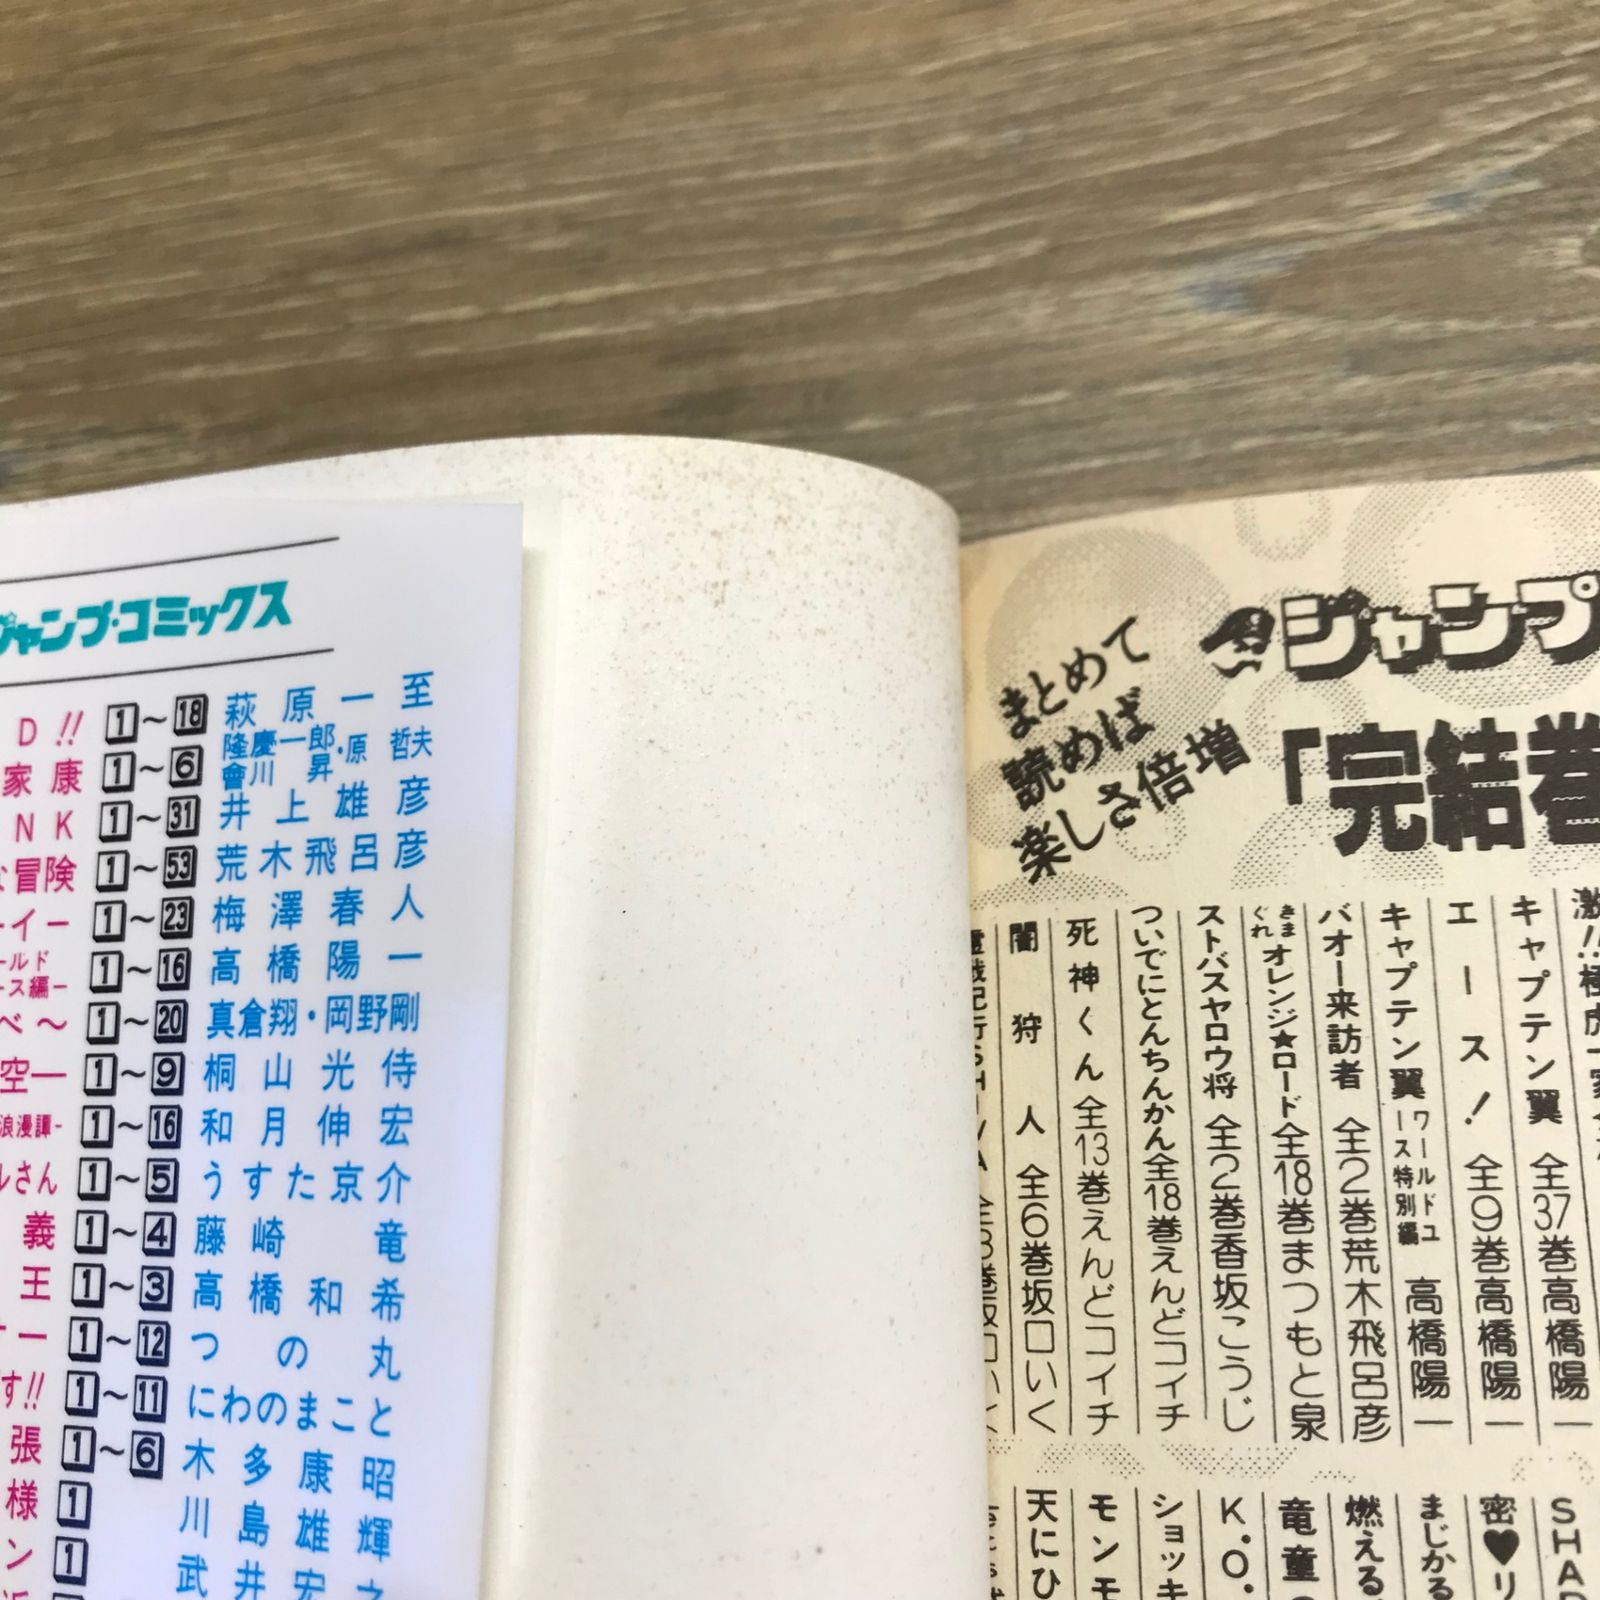 ジャンプ・コミックス
D!! 1～18 萩原一至
家康 1～6 隆慶一郎・原哲夫 會川昇
NK 1～31 井上雄彦
な冒険 1～53 荒木飛呂彦
ーイー 1～23 梅澤春人
ールド ース編- 1～16 高橋陽一
べ～ 1～20 真倉翔・岡野剛
空一 1～9 桐山光侍
浪漫譚- 1～16 和月伸宏
ルさん 1～5 うすた京介
義 1～4 藤崎竜
王 1～3 高橋和希
ー 1～12 つの丸
す!! 1～11 にわのまこと
張 1～6 木多康昭
様 1 川島雄輝
ン 1 武井宏之
まとめて
読めば
楽しさ倍増
ジャンプ
「完結巻
激!!極虎一家
キャプテン翼 全37巻 高橋陽一
エース! 全9巻 高橋陽一
キャプテン翼 ワールドユース特別編 高橋陽一
バオー来訪者 全2巻 荒木飛呂彦
きまぐれオレンジ★ロード 全18巻 まつもと泉
ストバスヤロウ将 全2巻 香坂こうじ
ついでにとんちんかん 全18巻 えんどコイチ
死神くん 全13巻 えんどコイチ
闇狩人 全6巻 坂口いく
霊戦記行SHIVA 全3巻 坂口いく
SHAD
密♥リ
まじかる
燃える
竜童の
K.O.
ショッキ
モンモ
天にひ